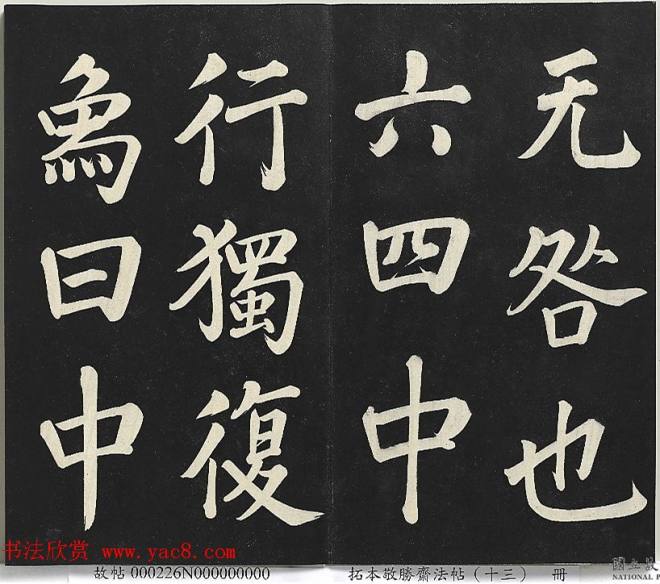 无咎也
六四中
行獨復
象曰中
书法欣赏 www.yac8.com
故帖 000226N000000000 拓本敬勝齋法帖（十三） 冊
NATIONAL